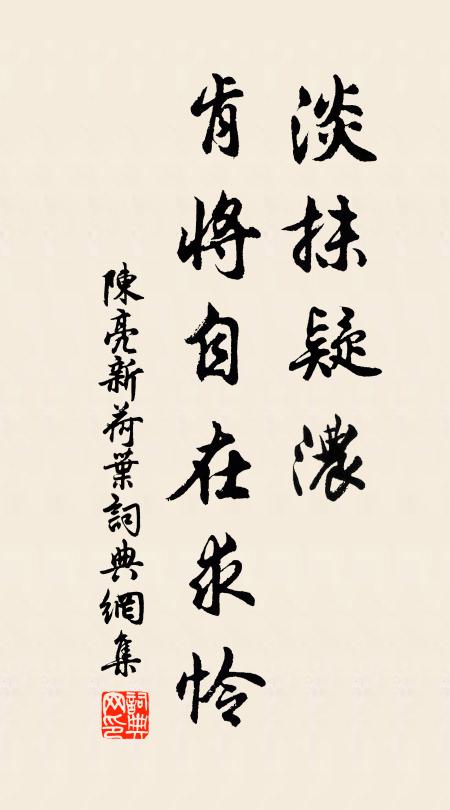 淡抹疑濃
肯將自在求怜
陳亮新荷葉詞典網集
詞典網印